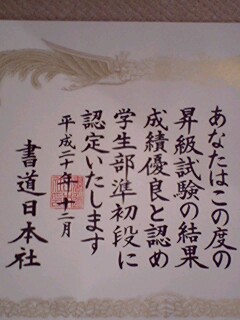 あなたはこの度の
昇級試験の結果
成績優良と認め
学生部準初段に
認定いたします
平成二十年十二月
書道日本社